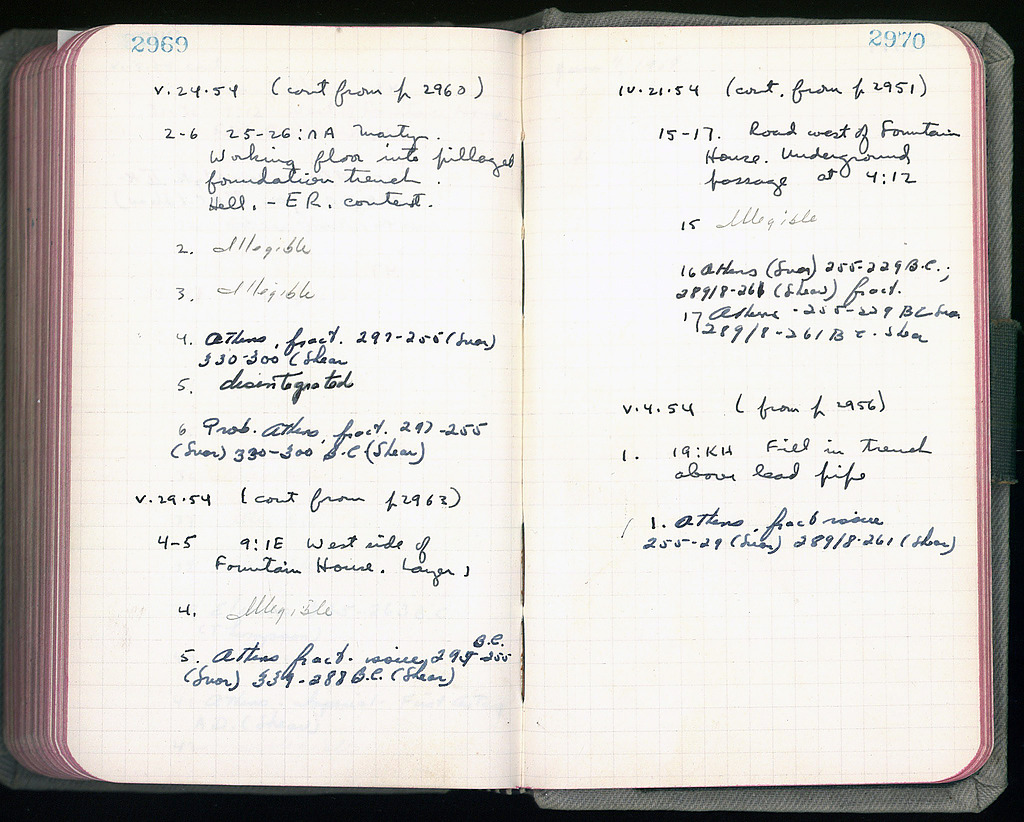 2969
V.24.54 (cont from p 2960)
2-6 25-26: A Marty.
Working floor into pillaged
foundation trench.
Hell. - ER. context.
2. Illegible
3. Illegible
4. Athens, fract. 297-255 (Svor)
330-300 (Shear
5. disintegrated
6 Prob. Athens, fract. 297-255
(Svor) 330-300 B.C (Shear)
V.29.54 (cont from p 2963)
4-5 9:IE West side of
Fountain House. Layer
4. Illegible
5. Athens fract. issue, 297-255 B.C.
(Svor) 339-288 B.C. (Shear)
2970
IV.21.54 (cont. from p 2951)
15-17. Road west of Fountain
House. Underground
passage at 4:12
15 Illegible
16 Athens (Svor) 255-229 B.C.;
289/8-261 (Shear) fract.
17 Athens - 255-229 BC Svor
289/8-261 B C. Shear
V.4.54 (from p 2956)
1. 19:KH Fill in trench
above lead pipe
/ 1. Athens, fract issue
255-29 (Svor) 289/8-261 (Shear)